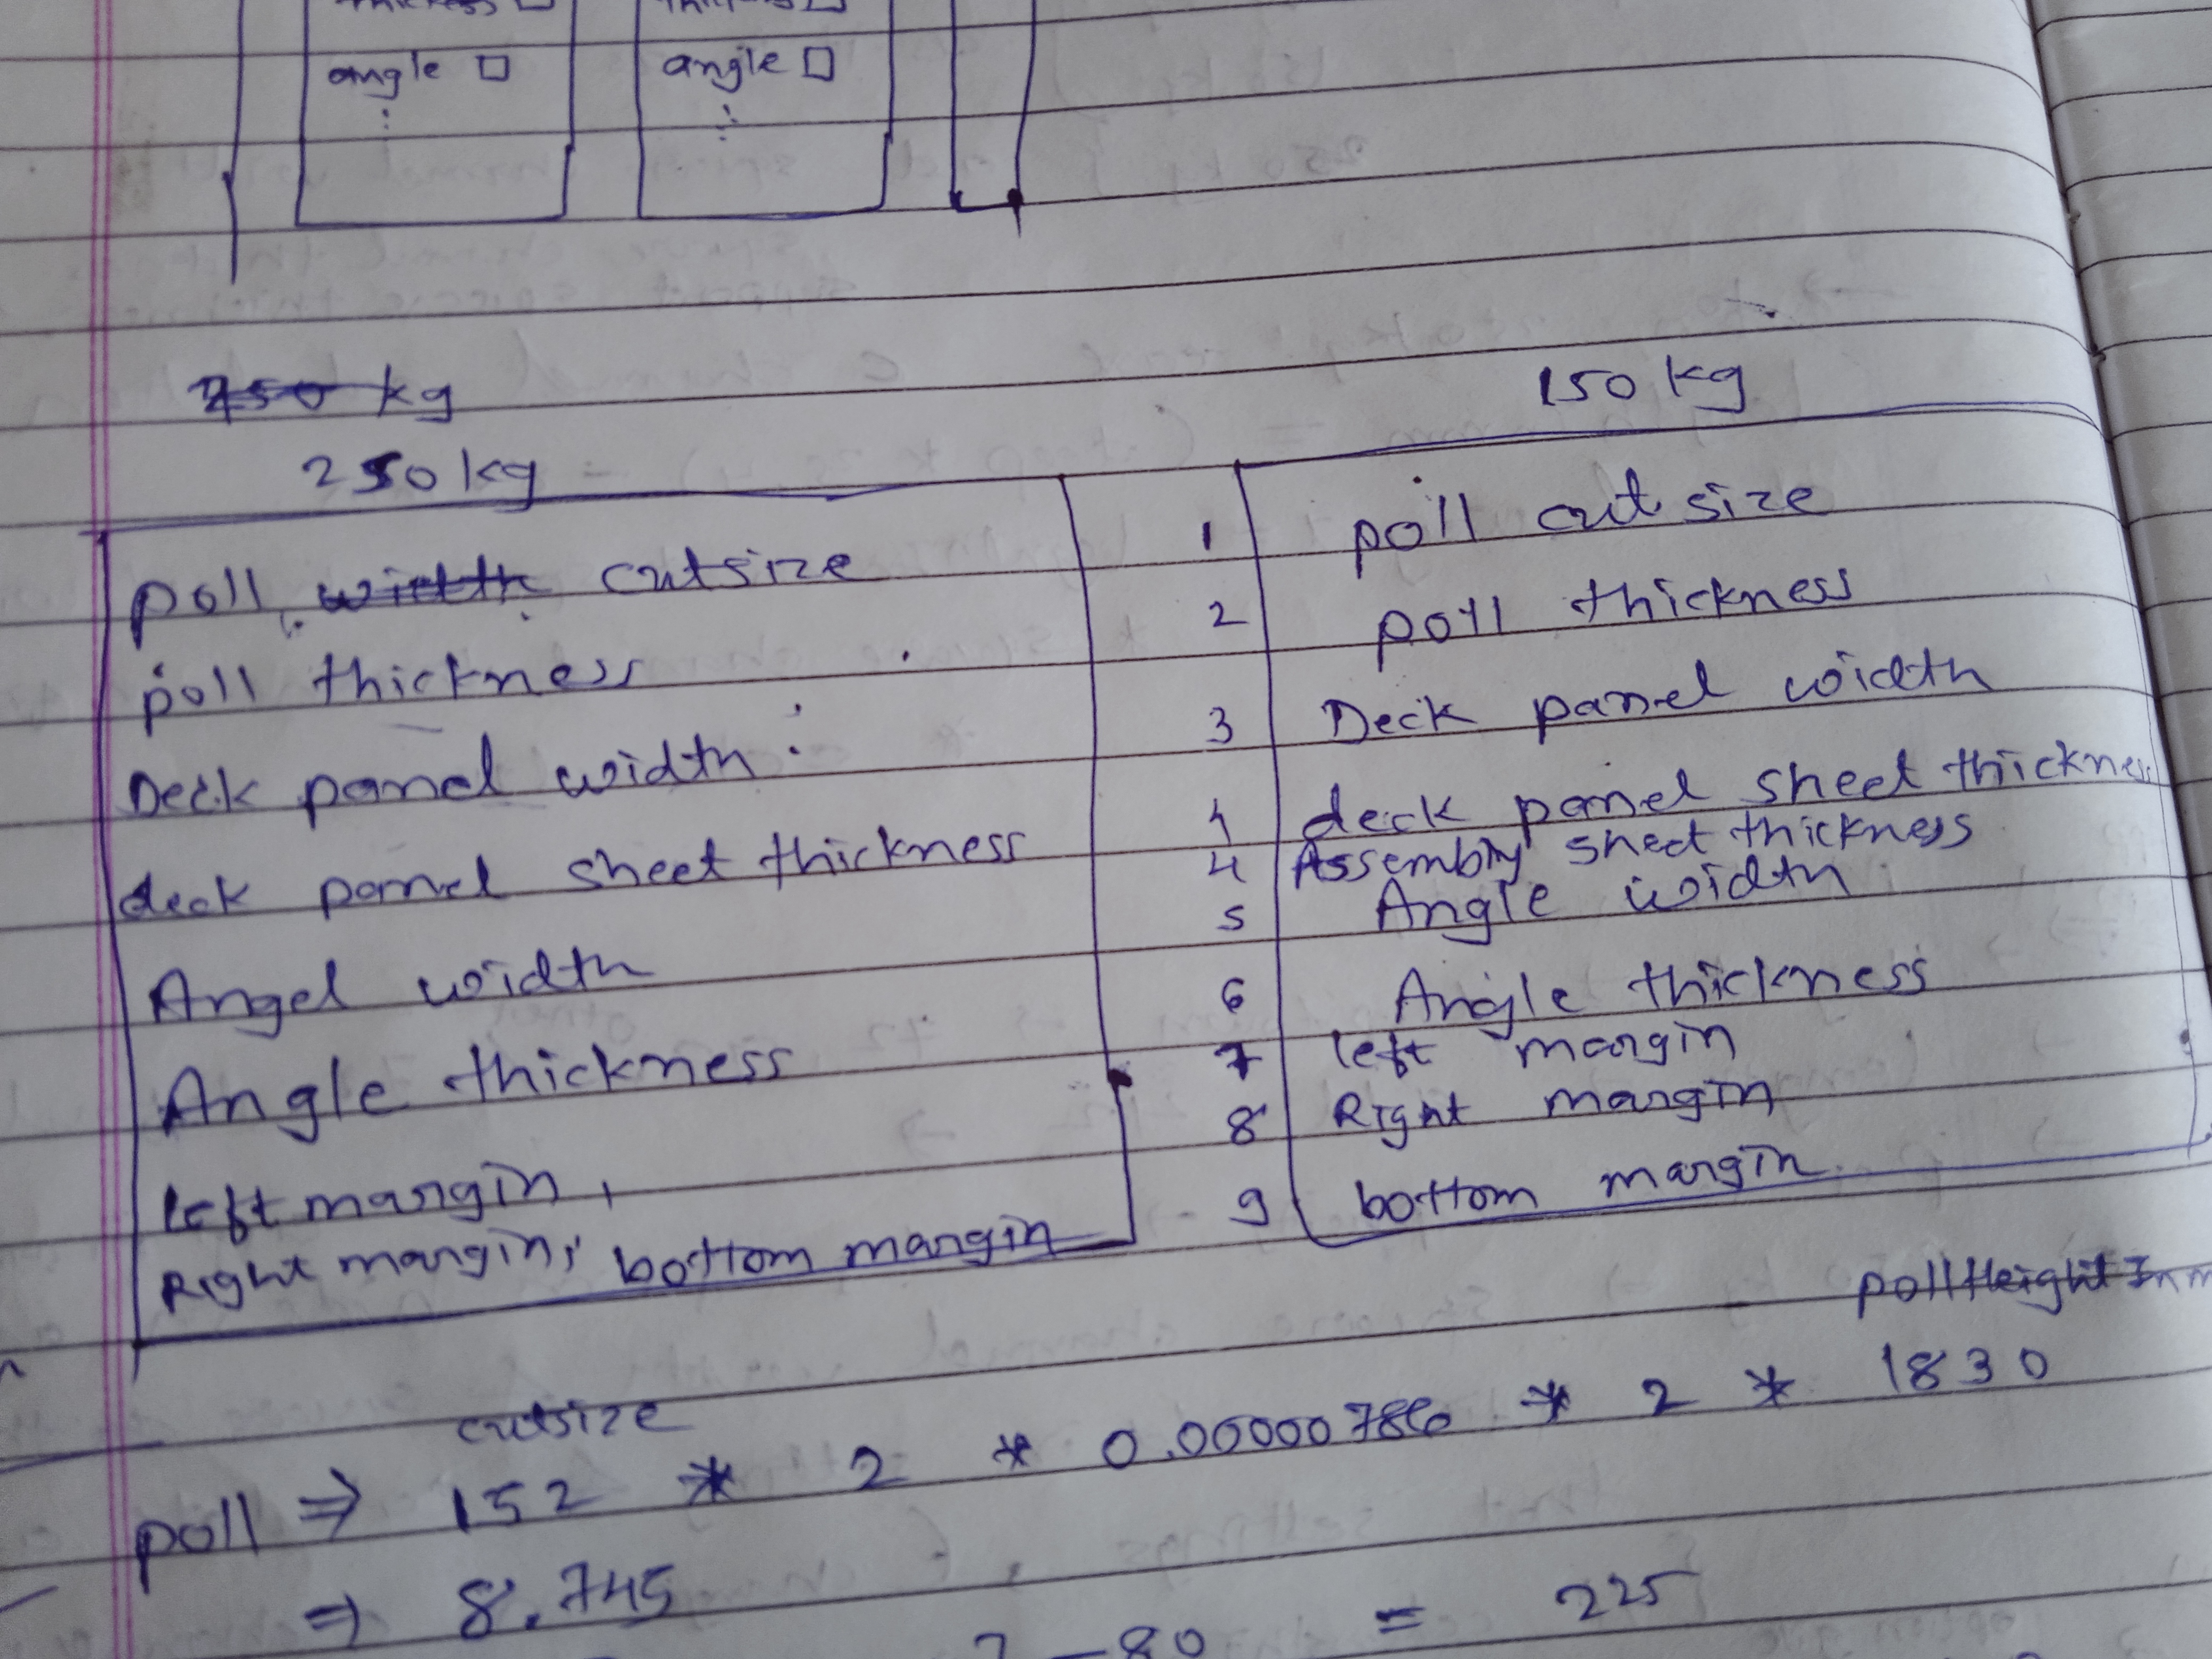 angle angle
kg
150 kg
250 kg
poll cutsize
poll thickness
Deck panel width :
deck panel sheet thickness
Angel width
Angle thickness
left margin,
Right margin, bottom margin
1 poll cut size
2 poll thickness
3 Deck panel width
4 deck panel sheet thickness
4 Assembly sheet thickness
5 Angle width
6 Angle thickness
7 left margin
8 Right margin
9 bottom margin
cutsize
poll ⇒ 152 * 2 * 0.00000786 * 2 * 1830
⇒ 8.745
- 80 = 225